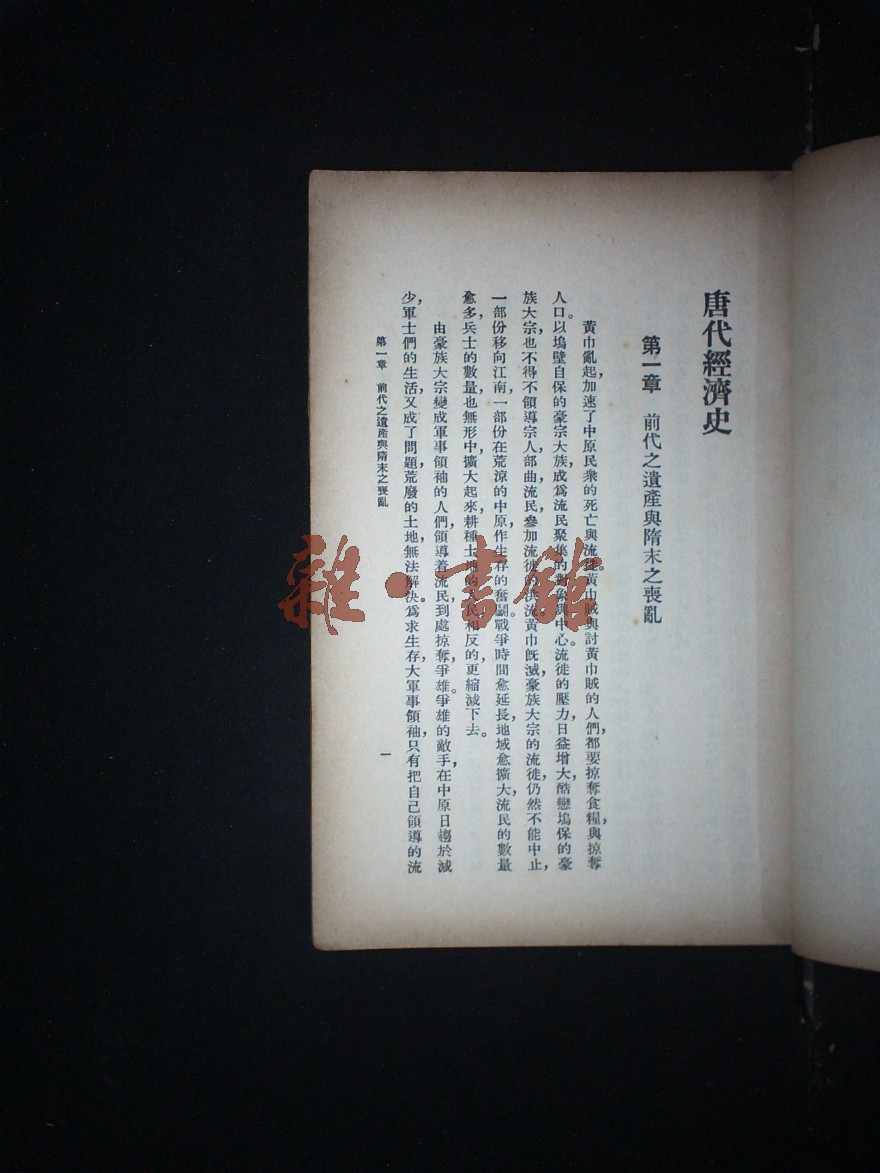 唐代經濟史
第一章　前代之遺產與隋末之喪亂
黃巾亂起，加速了中原民衆的死亡與流徙。黃巾賊與討黃巾賊的人們，都要掠奪食糧，與掠奪
人口。以塢壁自保的豪宗大族，成爲流民聚集的對象與中心。流徙的壓力，日益增大，酷戀塢保的豪
族大宗也不得不領導宗人部曲流民，參加流徙的洪流。黃巾旣滅，豪族大宗的流徙，仍然不能中止，
一部份移向江南，一部份在荒涼的中原作生存的奮鬭。戰爭時間愈延長，地域愈擴大，流民的數量
愈多，兵士的數量，也無形中擴大起來，耕種土地的人民，相反的，更縮減下去。
由豪族大宗變成軍事領袖的人們，領導着流民，到處掠奪爭雄。爭雄的敵手，在中原日趨於減
少，軍士們的生活，又成了問題，荒廢的土地，無法解決。爲求生存，大軍事領袖，只有把自己領導的流
第一章　前代之遺產與隋末之喪亂
一
雜·書館